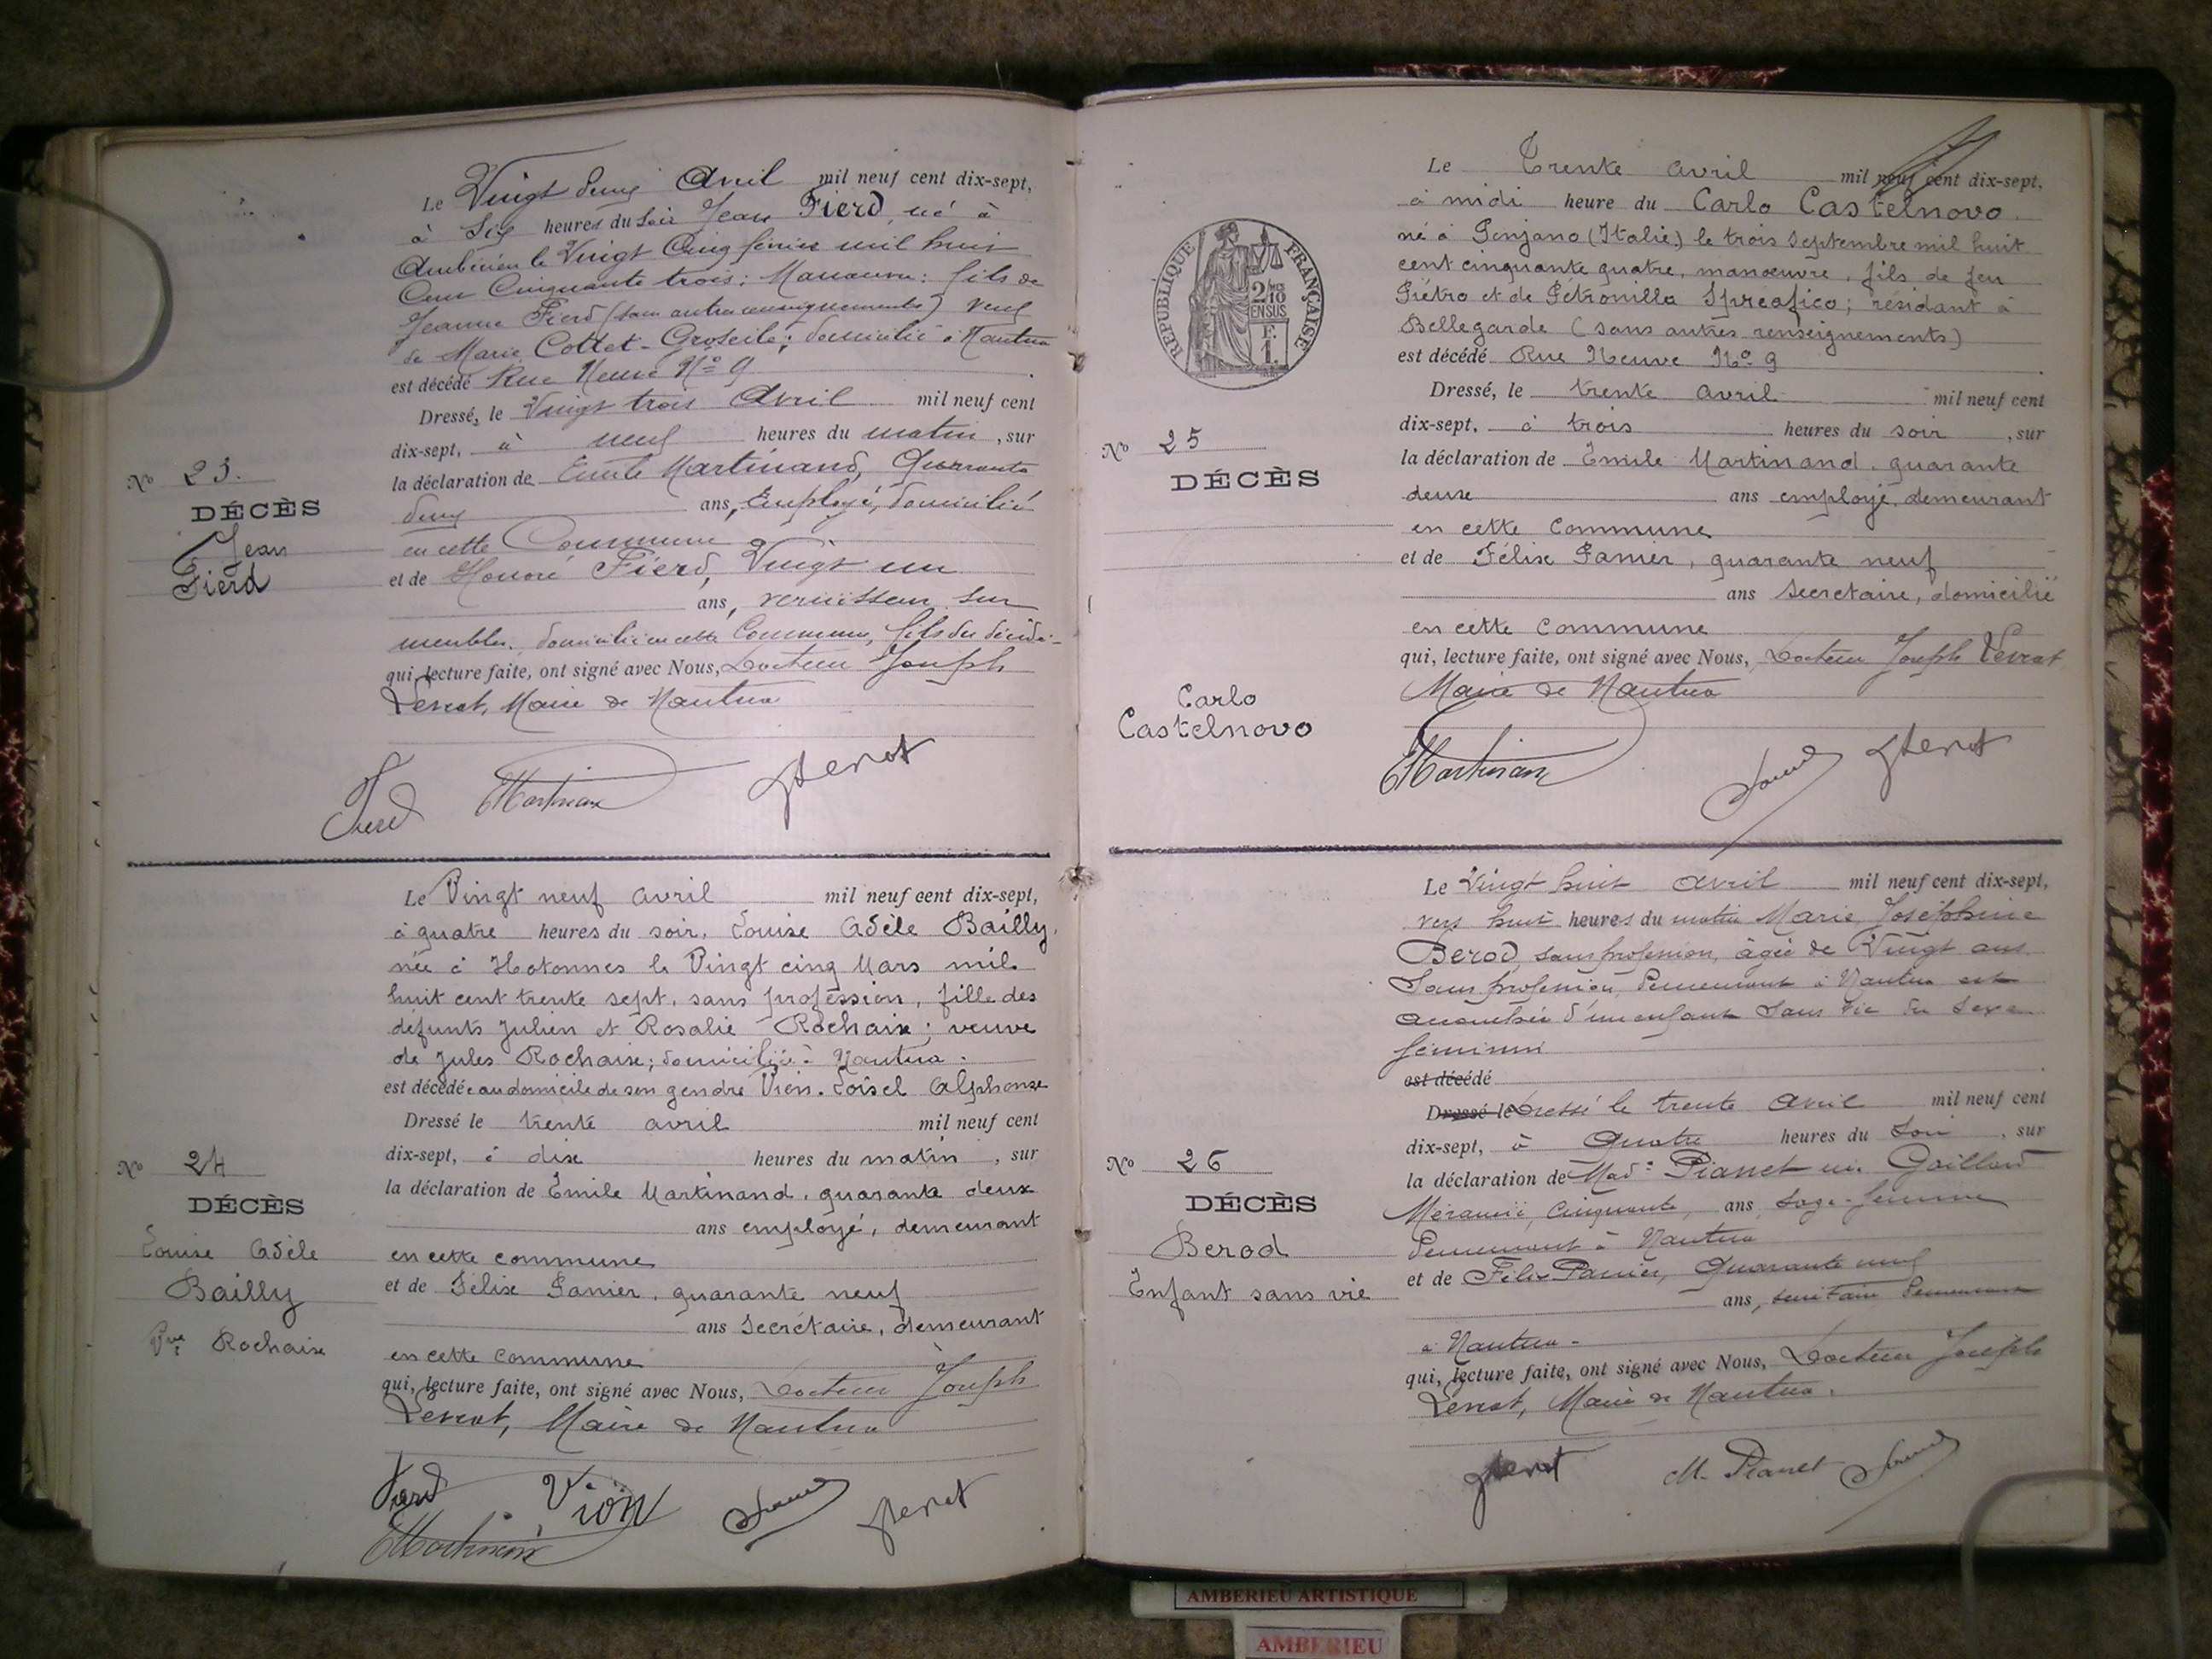 Le Vingt deux Avril mil neuf cent dix-sept,
à Six heures du soir Jean Fierd, né à
Ambérieu le Vingt Cinq février mil huit
Cent Cinquante trois; Manœuvre; fils de
Jeanne Fierd (sans autres renseignements) veuf
de Marie Cottet-Groseile; domicilié à Nantua
est décédé Rue Neuve No 9
Dressé, le Vingt trois Avril mil neuf cent
dix-sept, à neuf heures du matin, sur
la déclaration de Emile Martinand, Quarante
deux ans, Employé, domicilié
en cette Commune
et de Honoré Fierd, Vingt un
ans, vernisseur sur
meubles, domicilié en cette Commune, fils du décédé
qui, lecture faite, ont signé avec Nous, Docteur Joseph
Levrat, Maire de Nantua
No 23.
DÉCÈS
Jean
Fierd
Fierd
EMartinand
JLevrat
Le Vingt neuf avril mil neuf cent dix-sept,
à quatre heures du soir, Louise Adèle Bailly,
née à Hotonnes le Vingt cinq Mars mil
huit cent trente sept, sans profession, fille des
défunts Julien et Rosalie Rochaix; veuve
de Jules Rochaix; domiciliée à Nantua.
est décédée au domicile de son gendre Vion-Loisel Alphonse
Dressé le trente avril mil neuf cent
dix-sept, à dix heures du matin, sur
la déclaration de Émile Martinand, quarante deux
ans employé, demeurant
en cette commune
et de Félix Panier, quarante neuf
ans Secrétaire, demeurant
en cette commune
qui, lecture faite, ont signé avec Nous, Docteur Joseph
Levrat, Maire de Nantua
No 24
DÉCÈS
Louise Adèle
Bailly
Vve Rochaix
Vion
EMartinand
JLevrat
Le Trente avril mil neuf cent dix-sept,
à midi heure du Carlo Castelnovo
né à Pinjano (Italie) le trois Septembre mil huit
cent cinquante quatre, manœuvre, fils de feu
Piétro et de Petronilla Spreafico; résidant à
Bellegarde (sans autres renseignements)
est décédé Rue Neuve No 9
Dressé, le trente avril mil neuf cent
dix-sept, à trois heures du soir, sur
la déclaration de Emile Martinand, quarante
deux ans employé, demeurant
en cette commune
et de Félix Panier, quarante neuf
ans Secretaire, domicilié
en cette commune
qui, lecture faite, ont signé avec Nous, Docteur Joseph Levrat
Maire de Nantua
RÉPUBLIQUE FRANÇAISE
2/10
EN SUS
F.
1.
No 25
DÉCÈS
Carlo
Castelnovo
EMartinand
JLevrat
Le Vingt huit avril mil neuf cent dix-sept,
vers huit heures du matin Marie Joséphine
Berod, sans profession, âgée de Vingt ans
Sans profession, Demeurant à Nantua est
accouchée d'un enfant Sans vie du Sexe
féminin
est décédé
Dressé le Dressé le trente Avril mil neuf cent
dix-sept, à Quatre heures du Soir, sur
la déclaration de Made Pianet née Gaillard
cinquante, ans, Sage-femme
Demeurant à Nantua
et de Félix Panier, Quarante neuf
ans, secrétaire Demeurant
à Nantua-
qui, lecture faite, ont signé avec Nous, Docteur Joseph
Levrat, Maire de Nantua.
No 26
DÉCÈS
Berod
Enfant sans vie
JLevrat
M. Pianet
AMBERIEU ARTISTIQUE
AMBERIEU